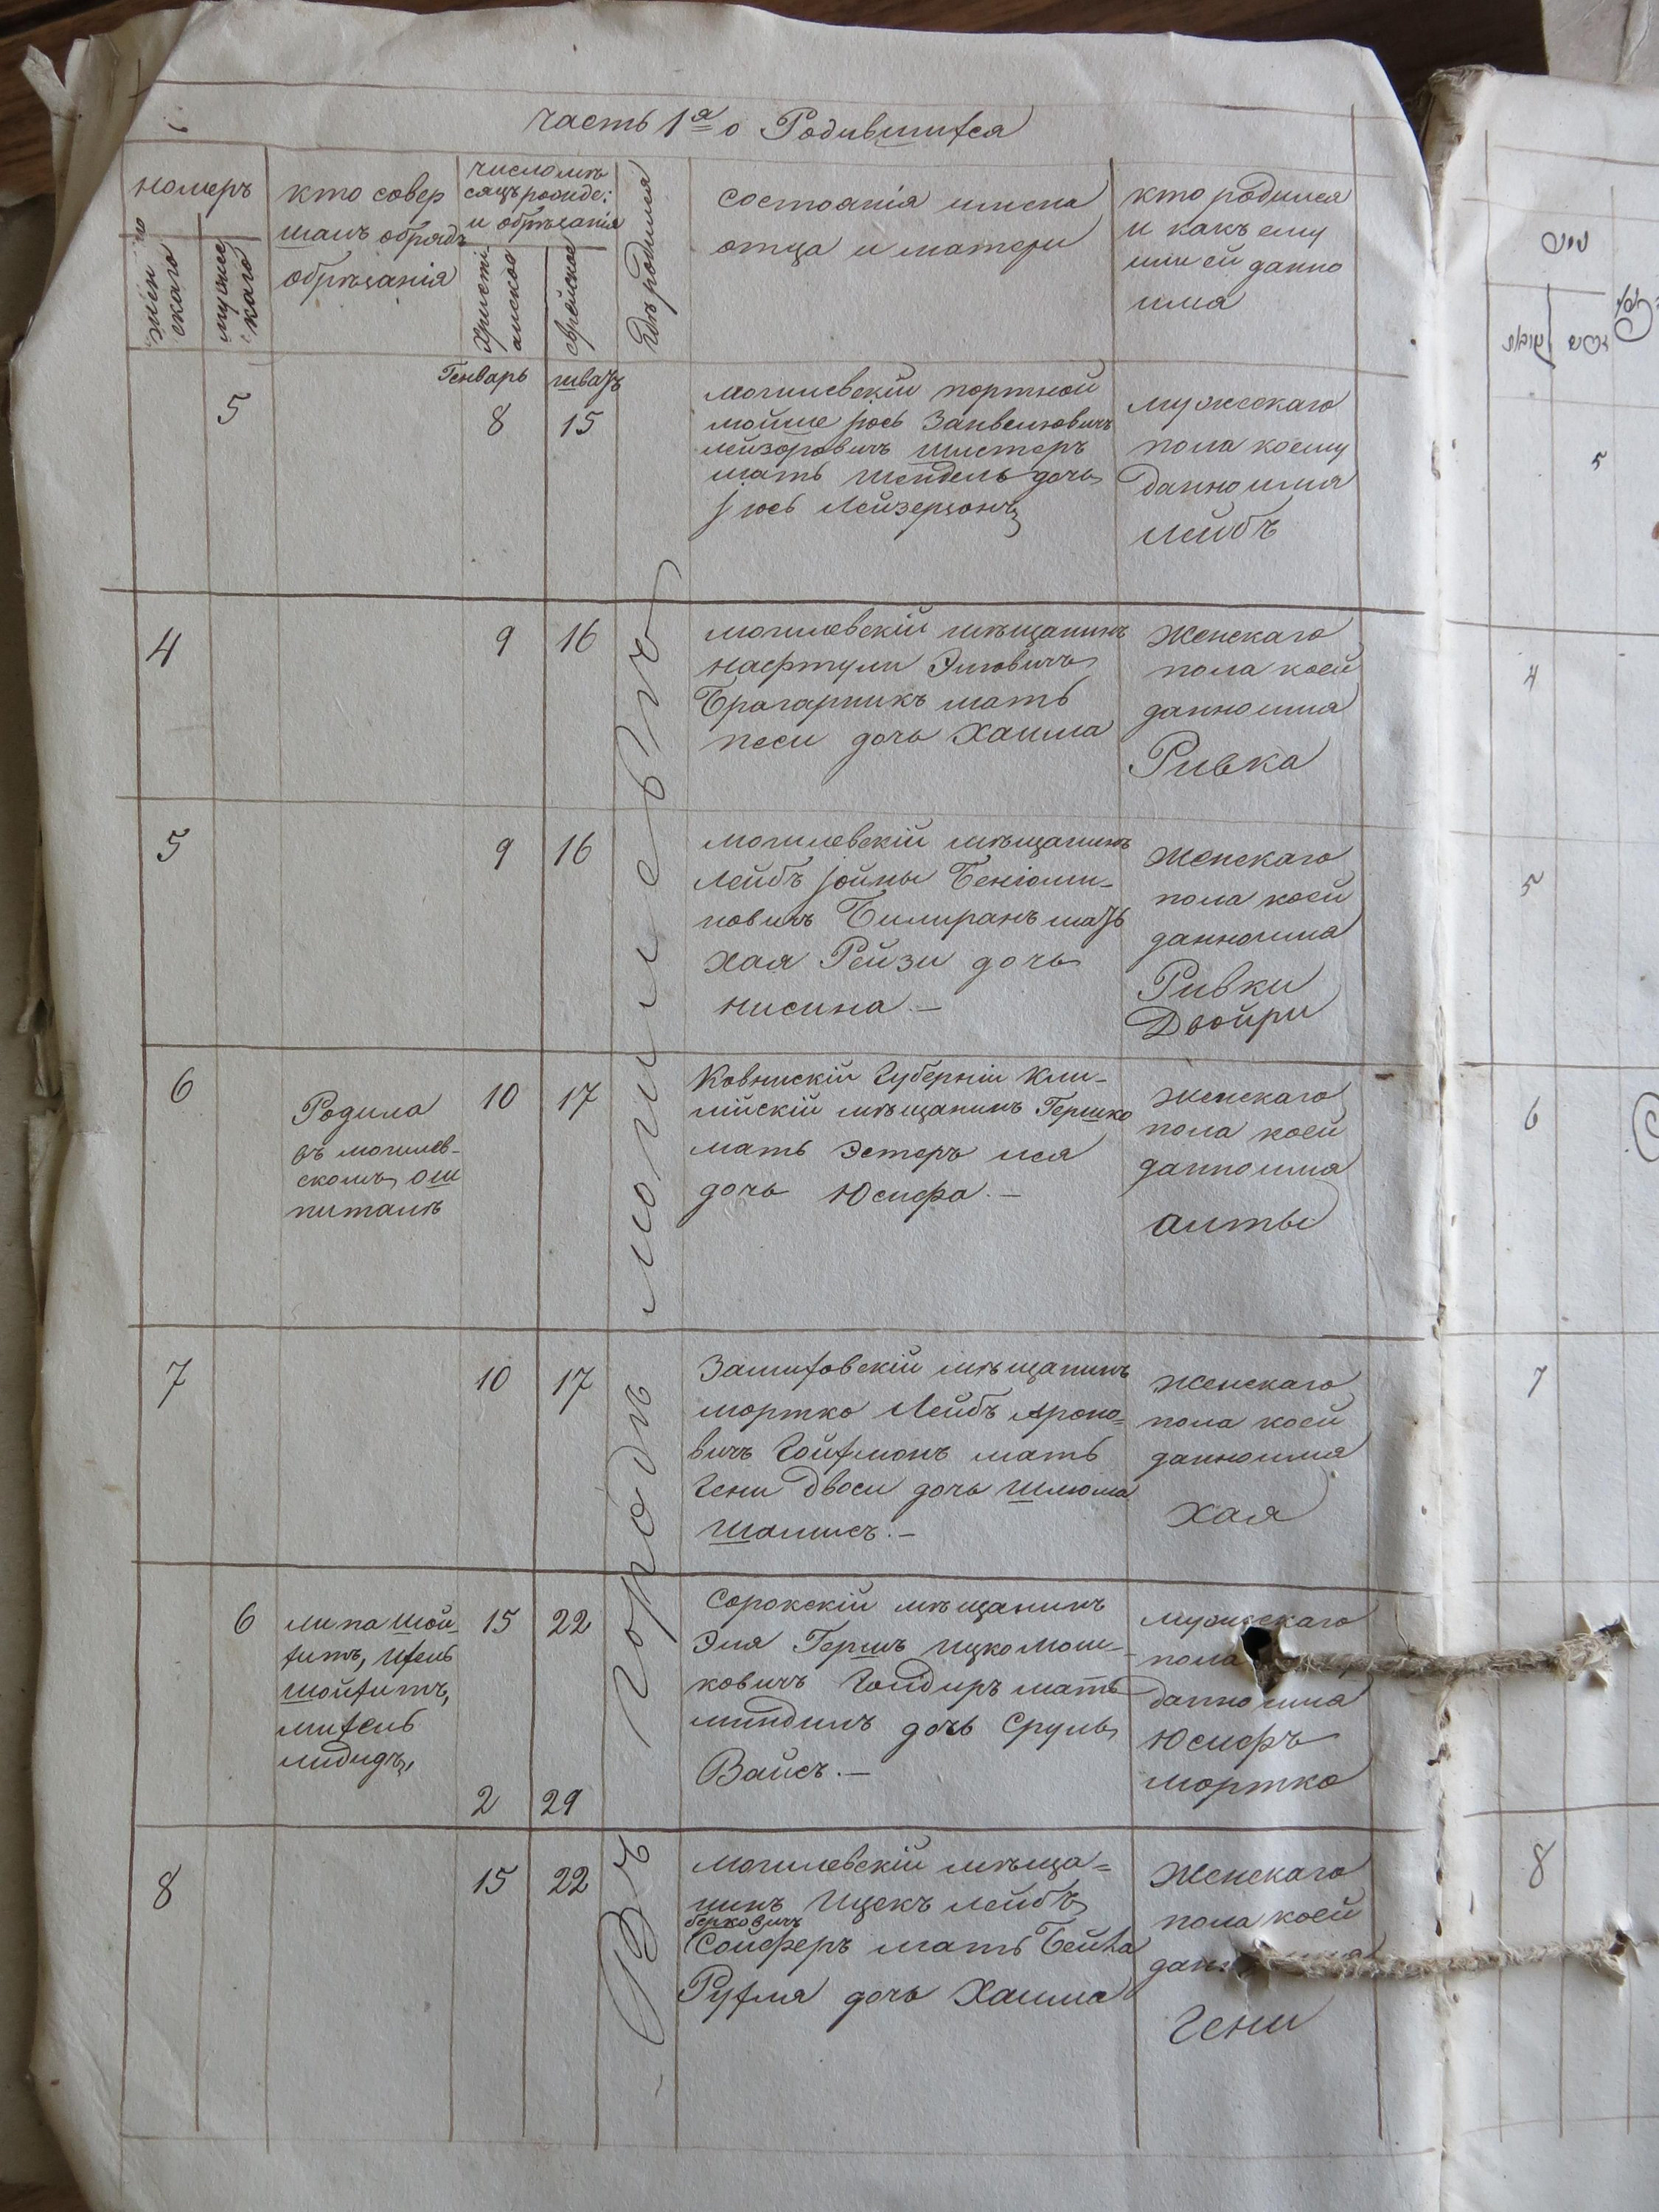 часть 1я о Родившихся
номеръ
женскаго
мужескаго
кто совер
шалъ обрядъ
обрѣзанія
число мѣ
сяцъ рожде:
и обрѣзанія
Христі
анское
еврейское
Гдѣ родился
состоянія имена
отца и матери
кто родился
и какъ ему
или ей данно
имя
5
Генварь
8
шватъ
15
могилевскій портной
мойше јось Занвелювичъ
лейзоровичъ шистеръ
мать шейндель дочь
јюсь Лейзерзонъ
мужескаго
пола коему
данно имя
лейбъ
4
9
16
могилевскій мѣщанинъ
нафтули Элювичъ
Брагарникъ мать
песи дочь Хаима
Женскаго
пола коей
данно имя
Ривка
5
9
16
могилевскій мѣщанинъ
Лейбъ јойны Беніоми-
новичъ Билиранъ мать
Хая Рейзи дочь
нисина.—
Женскаго
пола коей
данно имя
Ривки
Двойри
6
Родила
въ могилев-
скомъ ош
питалѣ
10
17
Ковнискій Губерніи Кли-
мійскій мѣщанинъ Гершко
мать Эстеръ лея
дочь Юсифа.—
женскаго
пола коей
данно имя
алты
7
10
17
Замихов скій мѣщанинъ
мортко Лейбъ Ароно=
вичъ Гойхмонъ мать
Гени двоси дочь шлюма
шамисъ.—
Женскаго
пола коей
данно имя
хая
6
липа шой
хитъ, ихель
шойхитъ,
михель
лидидъ,
15
22
2
29
Сорокскій мѣщанинъ
Эля Гершъ ицко мош-
ковичъ Гойдиръ мать
миндиль дочь Сруль
Вайсъ.—
мужескаго
пола
данно имя
Юсифъ
мортко
8
15
22
могилевскій мѣща=
нинъ Ицекъ лейбъ
берковичъ
Сойферъ мать Бейла
Рухля дочь Хаима
Женскаго
пола коей
Гени
Въ городѣ могилевѣ
5
4
5
6
7
8